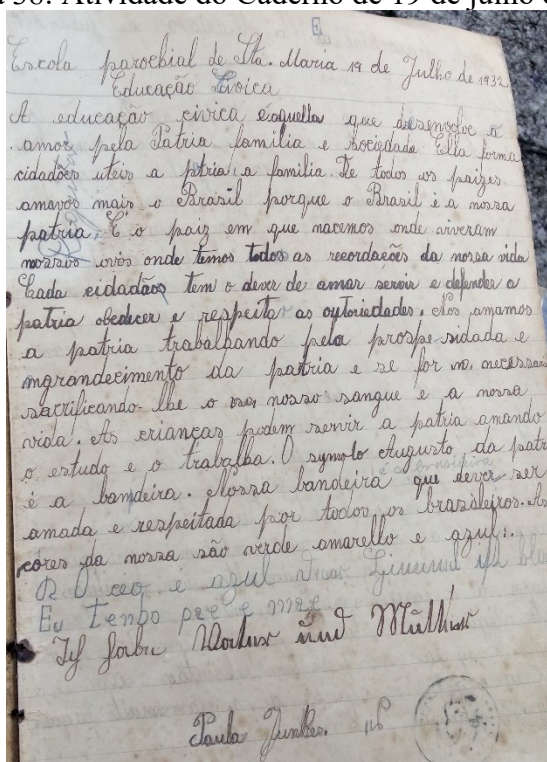 a 38: Atividade do Caderno de 19 de julho d
E
Escola parochial de Sta. Maria 19 de Julho de 1932
Educação Civica
A educação civica é aquella que desenvolve a
amor pela Patria familia e sociedade Ella forma
cidadões uteis a ptria, a familia. De todos os paizes
amavos mais o Brasil porque o Brasil é a nossa
patria. E o paiz em que nacemos onde viveram
nossos avós onde temos todos as recordações da nossa vida
Cada cidadãos tem o dever de amar servir e defender a
patria obedecer e respeita as oytoriedades. Nos amamos
a patria trabalhando pela prospesidada e
ingrandecimento da patria e se for no, necessari
sacrificando-lhe o nosso sangue e a nossa
vida. As crianças podem servir a patria amando
o estudo e o trabalha. O symolo Augusto da patr
é a brasileira
é a bandeira. Nossa bandeira que dever ser
amada e respeitada por todos os brazileiros. As
cores da nossa são verde amarello e azul.
O ceo e azul Himmel ist bla
Eu tenho pae e mae
Ich habe Vater und Mutter
Paula Junkes.